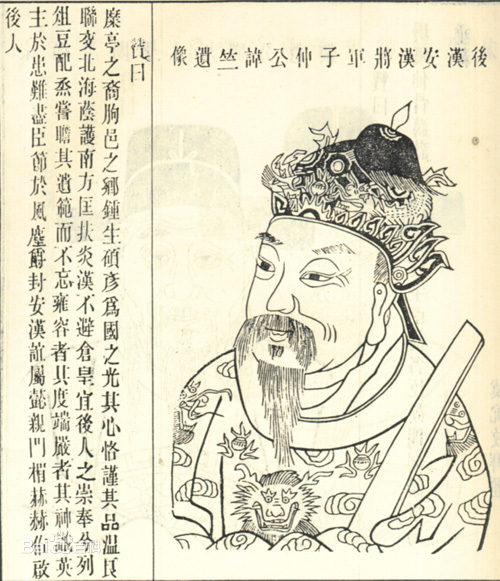 後漢安漢將軍子仲公諱竺遺像
贊曰
糜亭之裔朐邑之鄉鍾生碩彥爲國之光其心恪謹其品溫良
聯交北海蔭護南方匡扶炎漢不避倉皇宜後人之崇奉分列
俎豆配烝嘗瞻其遺範而不忘雍容者其度端嚴者其神識英
主於患難盡臣節於風塵爵封安漢誼屬懿親門楣赫赫佑啟
後人